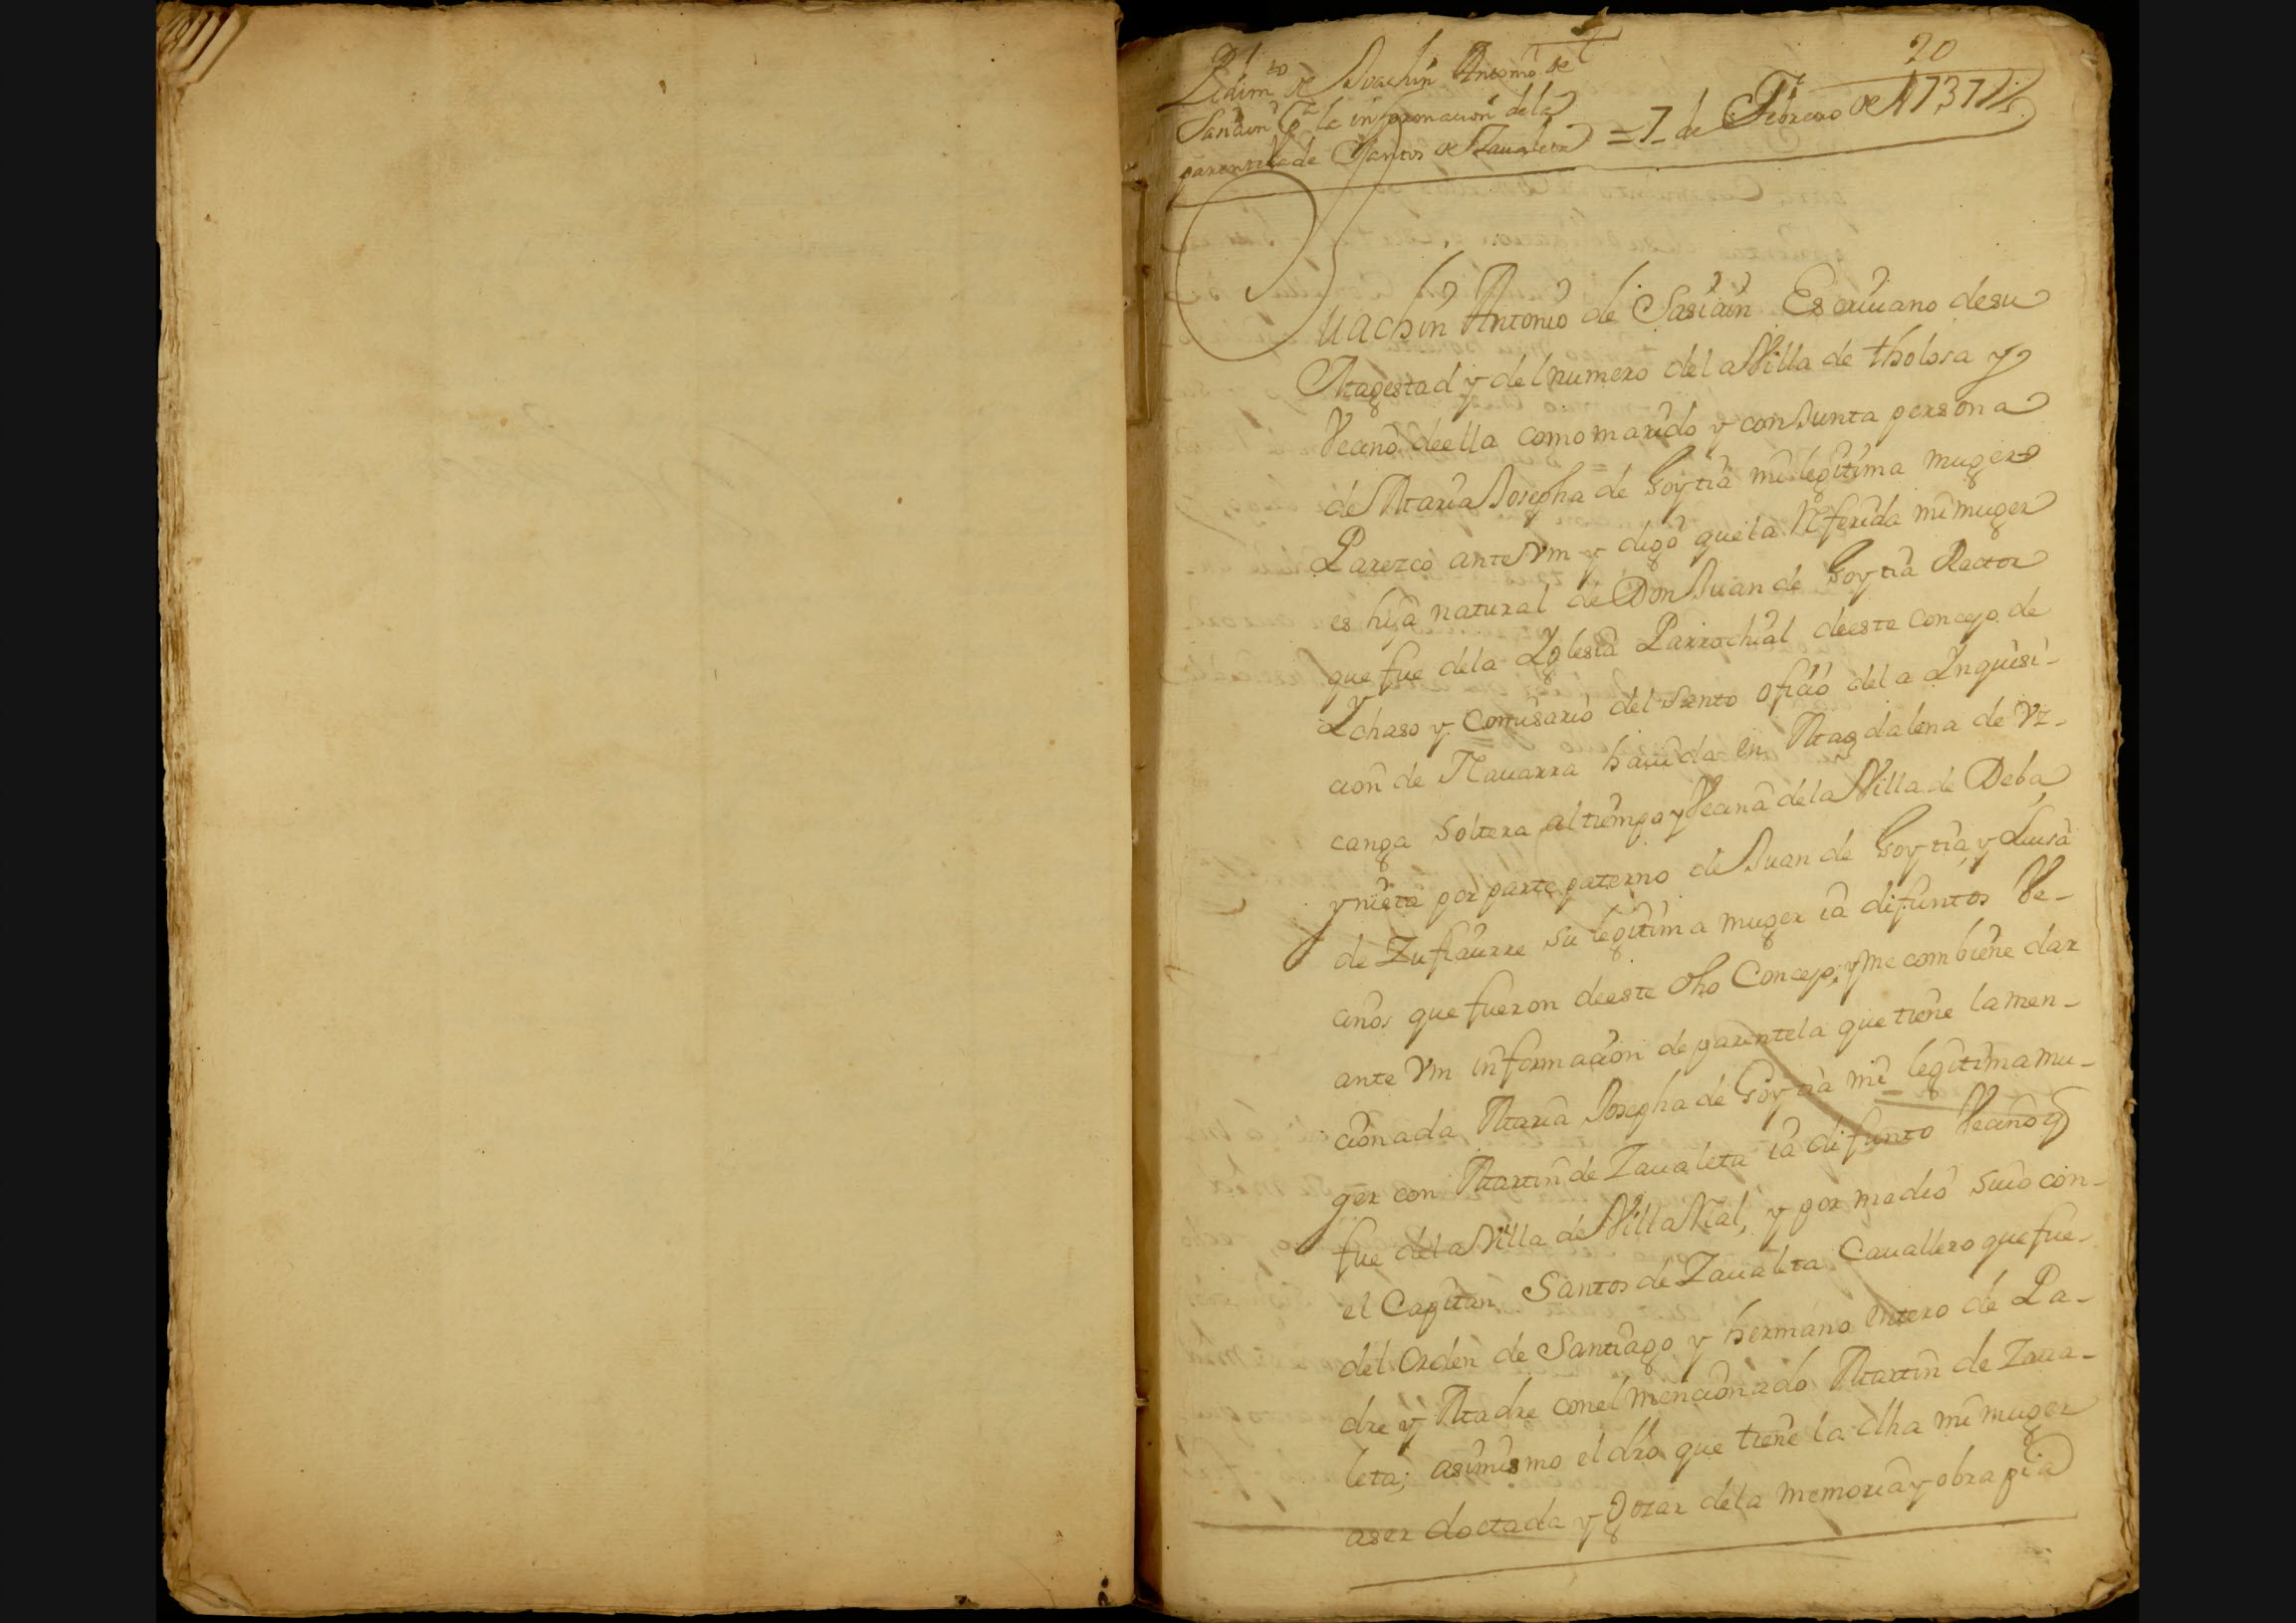 20
Pedimto de Joachin Antonio de
Sasiain Pa la informacion de la
parentela de Santos de Zaualeta = 7 de Febrero de 1737
Juachin Antonio de Sasiain Escriuano desu
Magestad y del numero dela Villa de tholosa y
Vecino deella como marido y conJunta persona
de Maria Josepha de Goytia mi legitima muger
Parezco ante Vm y digo que la Referida mi muger
es hija natural de Don Juan de Goytia Rector
que fue dela Yglesia Parrochial deeste concejo de
Ychaso y Comisario del Santo oficio dela Inquisi-
cion de Nauarra hauida en Magdalena de Vz-
canga soltera altiempo y Vecina dela Villa de Deba
y nieta por parte paterno de Juan de Goytia y Luisa
de Zufiaurre su legitima muger ia difuntos Ve-
cinos que fueron deeste dho Concejo; y me combiene dar
ante Vm informacion de parentela que tiene la men-
cionada Maria Josepha de Goytia mi legitima mu-
ger con Martin de Zaualeta ia difunto Vecino q
fue dela Villa de Villa Rial, y por medio suio con-
el Capitan Santos de Zaualeta Cauallero que fue-
del Orden de Santiago y hermano entero de Pa-
dre y Madre conel mencionado Martin de Zaua-
leta; asimismo el dro que tiene la dha mi muger
aser doctada y Gozar dela memoria y obra pia